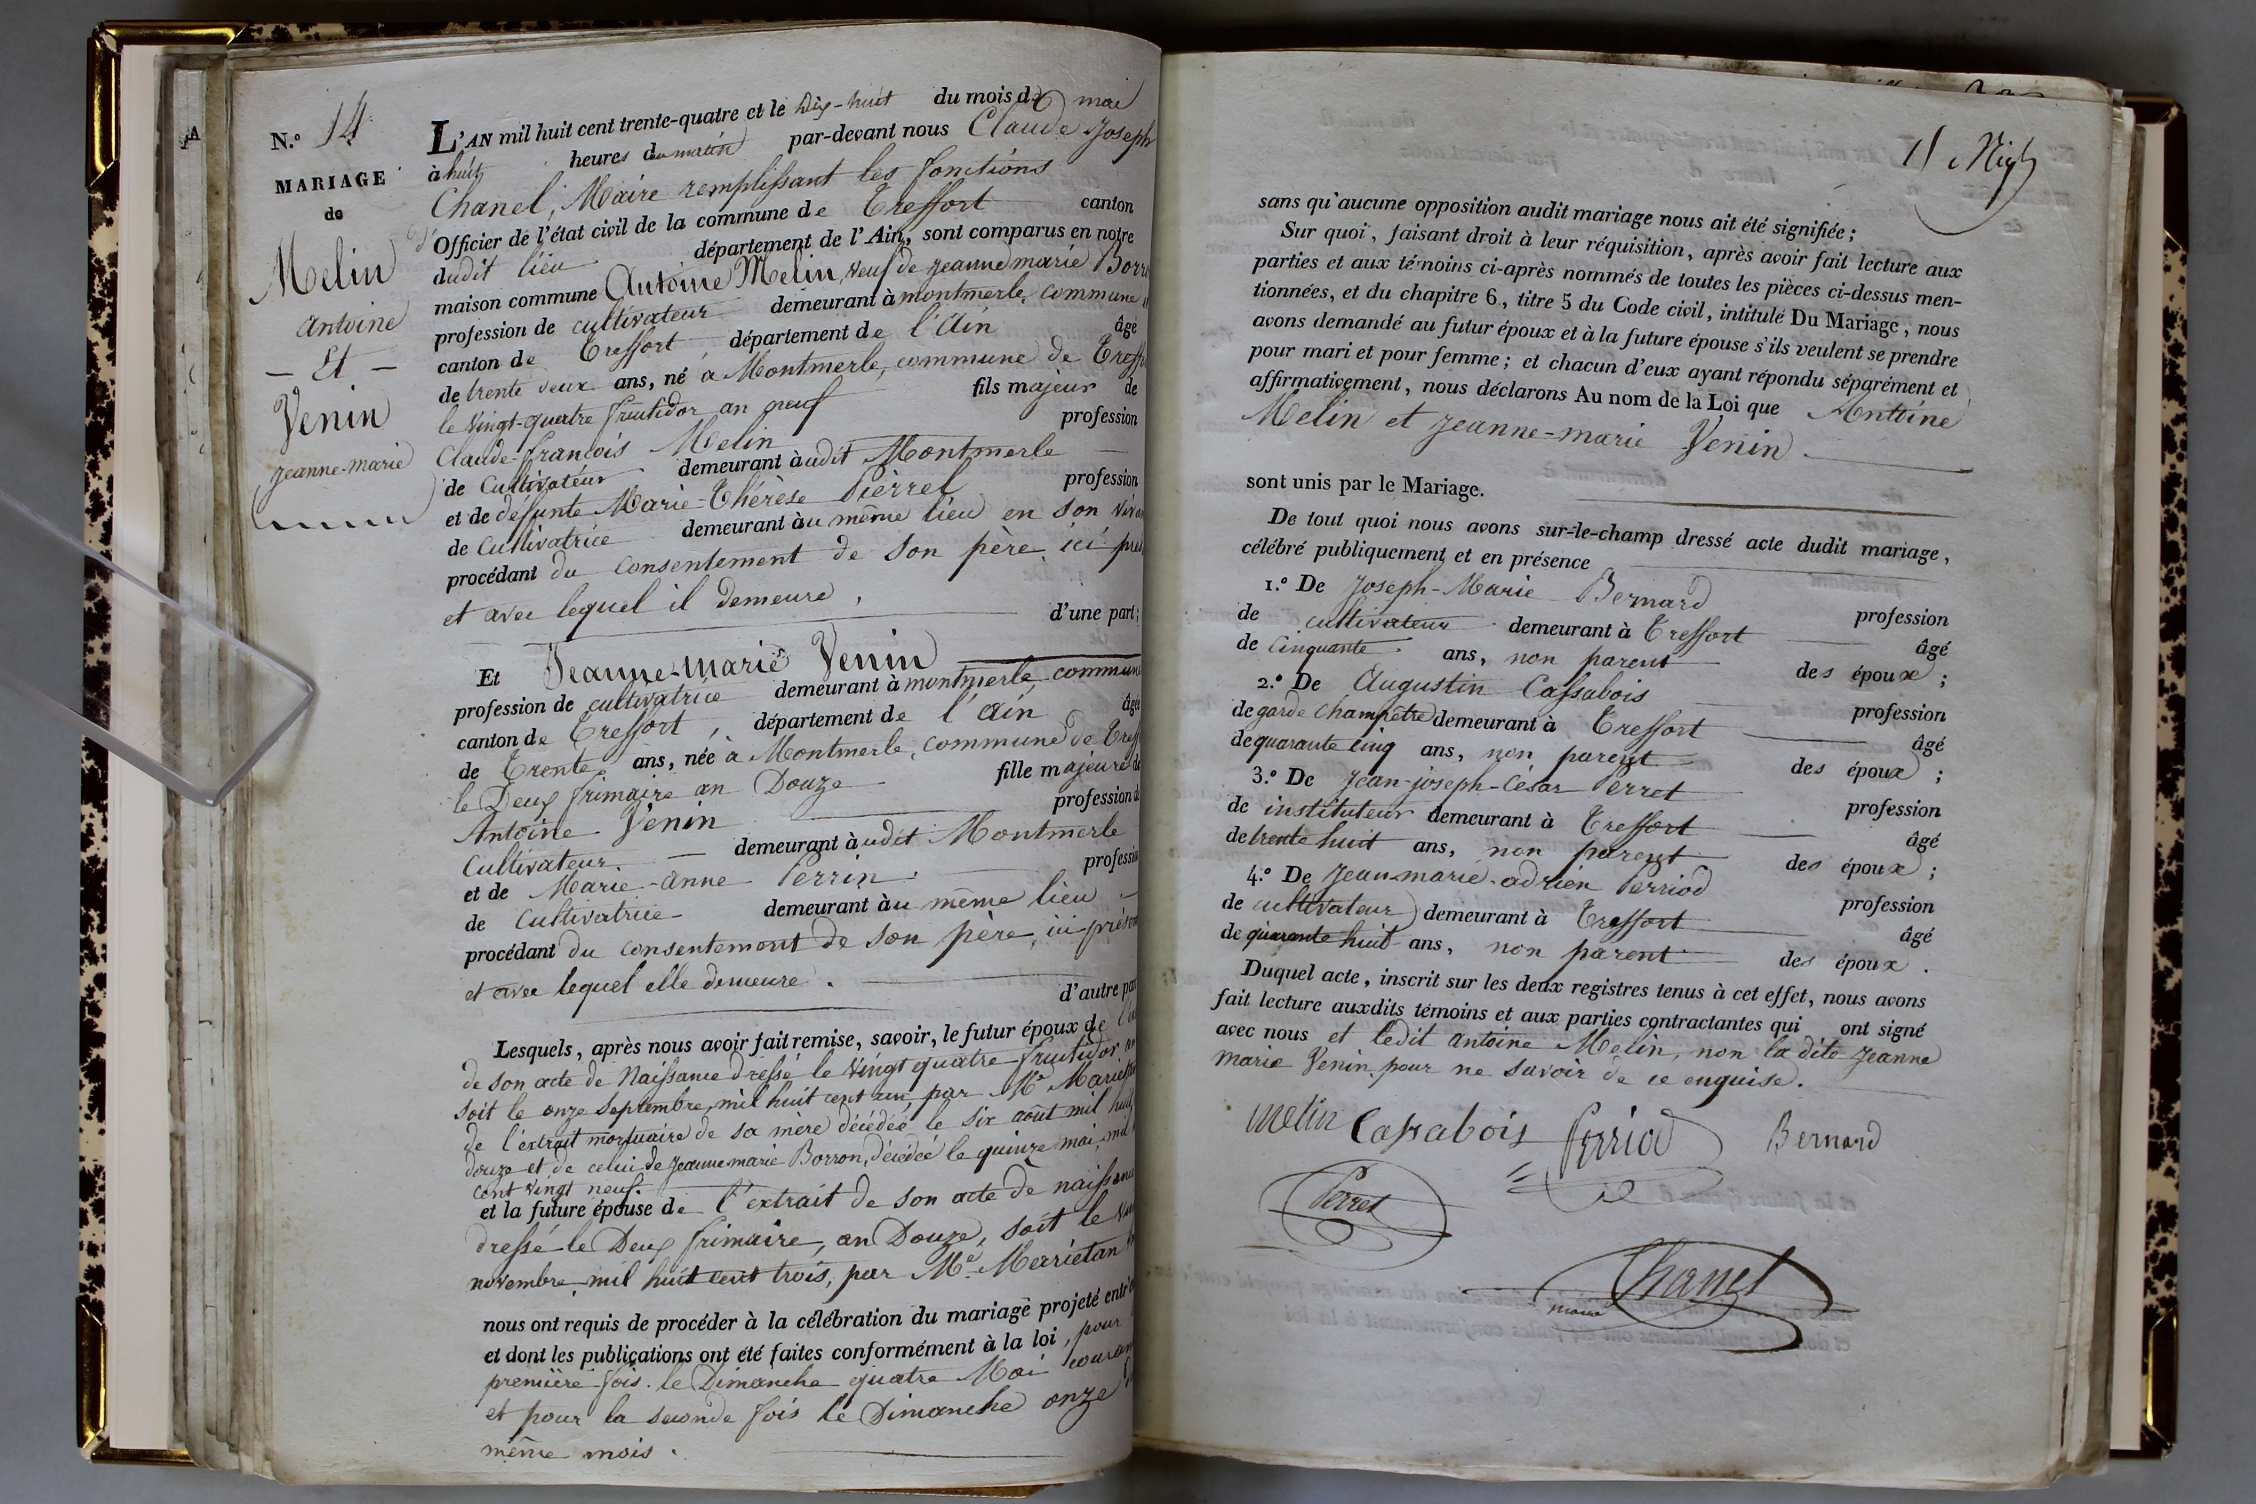 N.º 14
MARIAGE
de
Melin
antoine
— Et —
Venin
jeanne-marie
L'AN mil huit cent trente-quatre et le dix-huit du mois de mai
à huit heures du matin par-devant nous Claude Joseph
Chanel, Maire remplissant les fonctions
d'Officier de l'état civil de la commune de Treffort canton
dudit lieu département de l'Ain, sont comparus en notre
maison commune Antoine Melin, veuf de jeanne marie Borr
profession de cultivateur demeurant à montmerle, commune
canton de Treffort département de l'Ain âgé
de trente deux ans, né à Montmerle, commune de Treff
le vingt-quatre fructidor an neuf fils majeur de
Claude-françois Melin profession
de Cultivateur demeurant audit Montmerle
et de deffunte Marie-Thérèse Pierrel profession
de Cultivatrice demeurant au même lieu en son viva
procédant du consentement de son père ici prés
et avec lequel il demeure, d'une part;
Et Jeanne-marie Venin
profession de cultivatrice demeurant à montmerle, commune
canton de Treffort, département de l'Ain âgée
de Trente ans, née à Montmerle, commune de Treff
le Deux frimaire an Douze fille majeure de
Antoine Venin profession de
Cultivateur — demeurant audit Montmerle
et de Marie-anne Perrin profession
de Cultivatrice demeurant au même lieu
procédant du consentement de son père, ici présent
et avec lequel elle demeure. d'autre par
Lesquels, après nous avoir fait remise, savoir, le futur époux de
de son acte de Naissance dressé le vingt quatre fructidor an
soit le onze septembre, mil huit cent un par Me
de l'extrait mortuaire de sa mère décédée le six août mil huit
douze et de celui de jeanne marie Borron, décédée le quinze mai, mil
cent vingt neuf.
et la future épouse de l'extrait de son acte de naissance
dressé le Deux frimaire, an Douze, soit le
novembre, mil huit cent trois, par Me Marietan
nous ont requis de procéder à la célébration du mariage projeté entr'e
et dont les publications ont été faites conformément à la loi, pour
première fois le Dimanche quatre Mai couran
et pour la seconde fois le Dimanche onze
même mois.
sans qu'aucune opposition audit mariage nous ait été signifiée;
Sur quoi, faisant droit à leur réquisition, après avoir fait lecture aux
parties et aux témoins ci-après nommés de toutes les pièces ci-dessus men-
tionnées, et du chapitre 6, titre 5 du Code civil, intitulé Du Mariage, nous
avons demandé au futur époux et à la future épouse s'ils veulent se prendre
pour mari et pour femme; et chacun d'eux ayant répondu séparément et
affirmativement, nous déclarons Au nom de la Loi que Antoine
Melin et jeanne-marie Venin.
sont unis par le Mariage.
De tout quoi nous avons sur-le-champ dressé acte dudit mariage,
célébré publiquement et en présence
1.º De Joseph-Marie Bernard profession
de cultivateur demeurant à Treffort âgé
de cinquante ans, non parent des époux;
2.º De Augustin Cassabois profession
de garde champêtre demeurant à Treffort âgé
de quarante cinq ans, non parent des époux;
3.º De Jean-joseph-César Perret profession
de instituteur demeurant à Treffort âgé
de trente huit ans, non parent des époux;
4.º De Jean marie-adrien Perriod profession
de cultivateur demeurant à Treffort âgé
de quarante huit ans, non parent des époux.
Duquel acte, inscrit sur les deux registres tenus à cet effet, nous avons
fait lecture auxdits témoins et aux parties contractantes qui ont signé
avec nous et ledit antoine Melin, non la dite jeanne
marie Venin pour ne savoir de ce enquise.
melin Cassabois Perriod Bernard
Perret
Chanel
maire